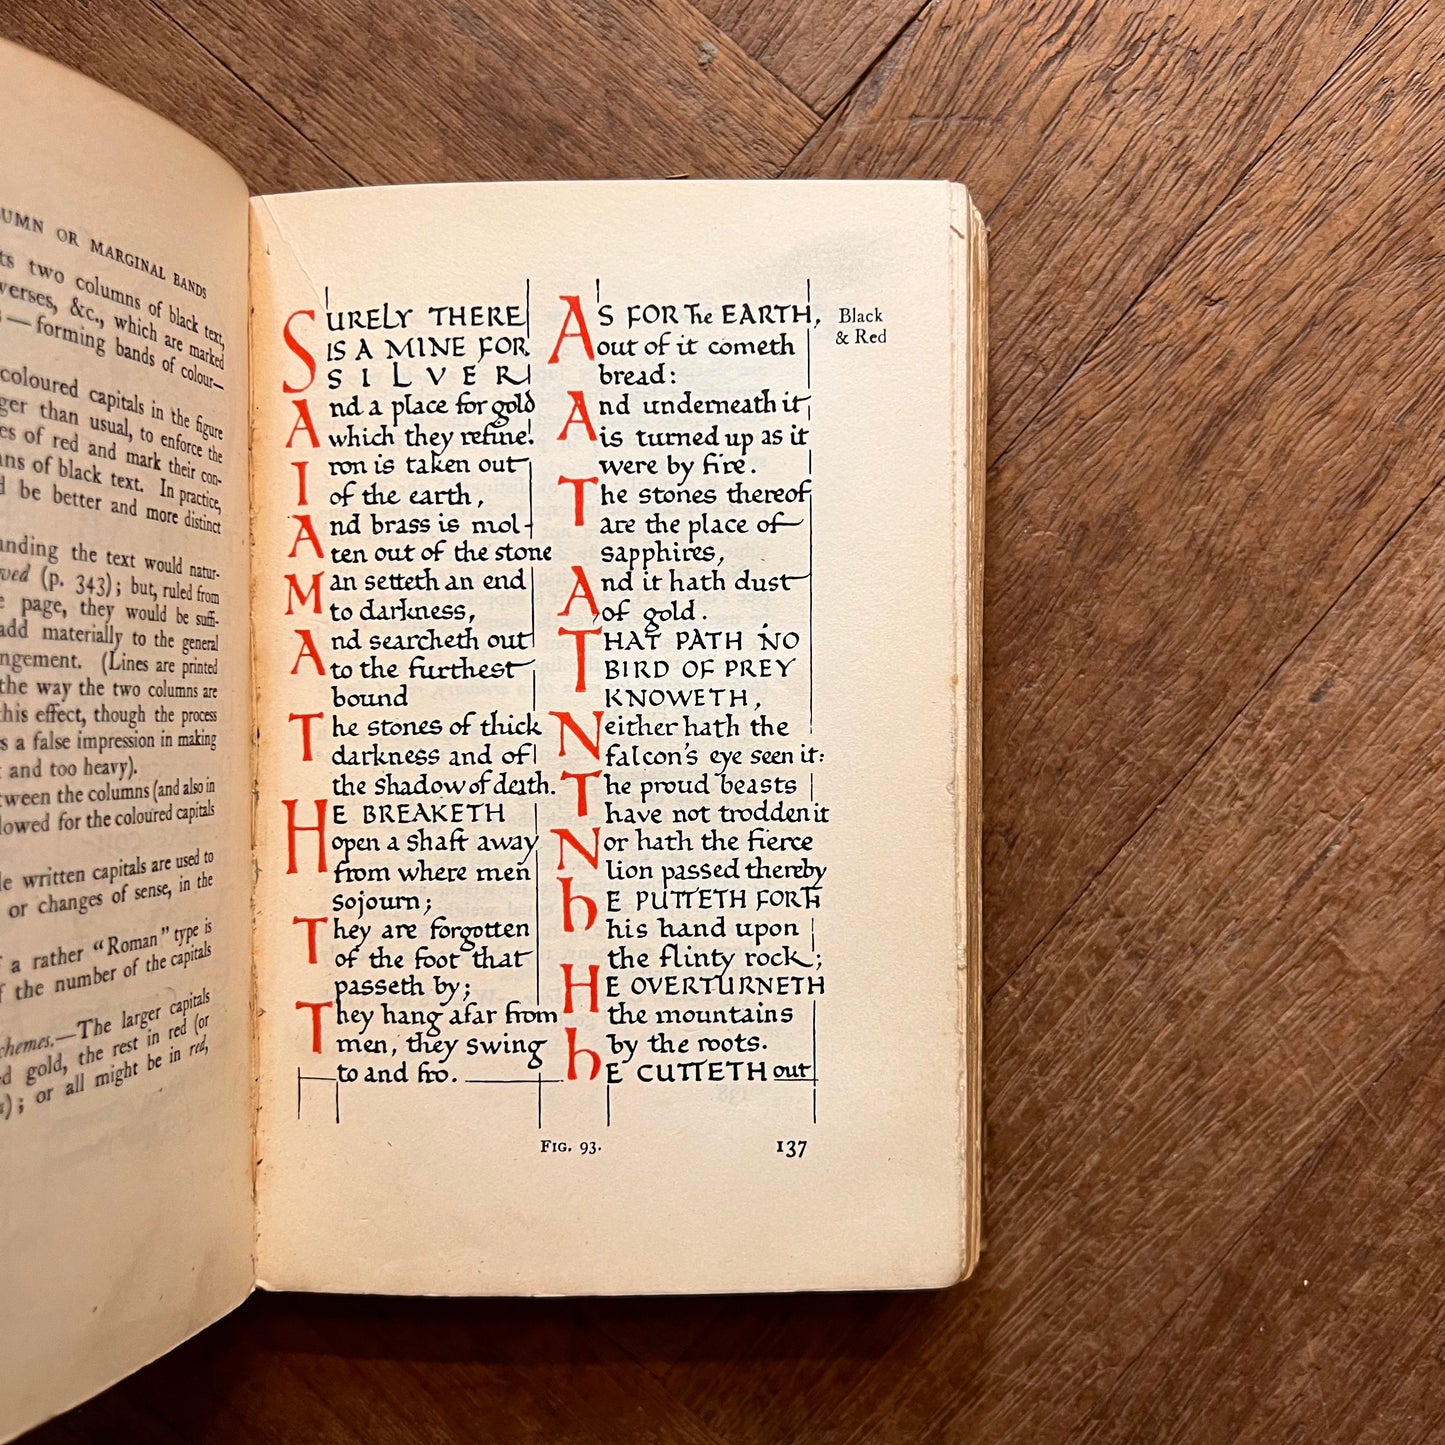 UMN OR MARGINAL BANDS
ts two columns of black text,
verses, &c., which are marked
— forming bands of colour—
coloured capitals in the figure
ger than usual, to enforce the
es of red and mark their con-
ns of black text. In practice,
d be better and more distinct
nding the text would natur-
ved (p. 343); but, ruled from
e page, they would be suffi-
add materially to the general
ngement. (Lines are printed
the way the two columns are
this effect, though the process
s a false impression in making
and too heavy).
tween the columns (and also in
lowed for the coloured capitals
le written capitals are used to
or changes of sense, in the
a rather "Roman" type is
f the number of the capitals
chemes.—The larger capitals
d gold, the rest in red (or
s); or all might be in red,
SURELY THERE
IS A MINE FOR
SILVER
And a place for gold
which they refine.
Iron is taken out
of the earth,
And brass is mol-
ten out of the stone
Man setteth an end
to darkness,
And searcheth out
to the furthest
bound
The stones of thick
darkness and of
the shadow of death.
HE BREAKETH
open a shaft away
from where men
sojourn;
They are forgotten
of the foot that
passeth by;
They hang afar from
men, they swing
to and fro.
AS FOR The EARTH,
out of it cometh
bread:
And underneath it
is turned up as it
were by fire.
The stones thereof
are the place of
sapphires,
And it hath dust
of gold.
THAT PATH NO
BIRD OF PREY
KNOWETH,
Neither hath the
falcon's eye seen it:
The proud beasts
have not trodden it
Nor hath the fierce
lion passed thereby
hE PUTTETH FORTH
his hand upon
the flinty rock;
HE OVERTURNETH
the mountains
by the roots.
hE CUTTETH out
Black
& Red
FIG. 93.
137